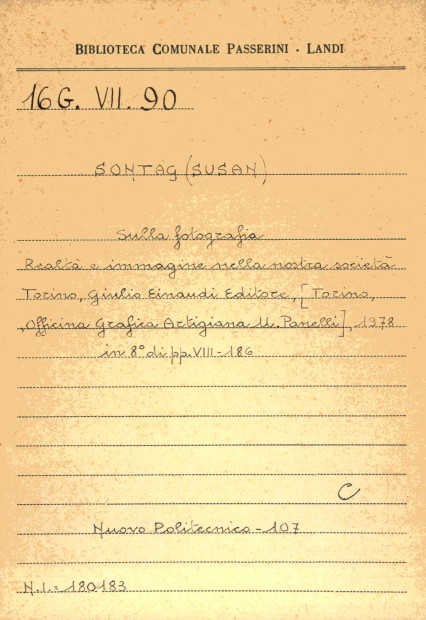 BIBLIOTECA COMUNALE PASSERINI - LANDI
16 G. VII. 90
SONTAG (SUSAN)
Sulla fotografia
Realtà e immagine nella nostra società
Torino, Giulio Einaudi Editore, [Torino,
Officina Grafica Artigiana U. Panelli], 1978
in 8° di pp. VIII-186
C
Nuovo Politecnico - 107
N.I.= 180183